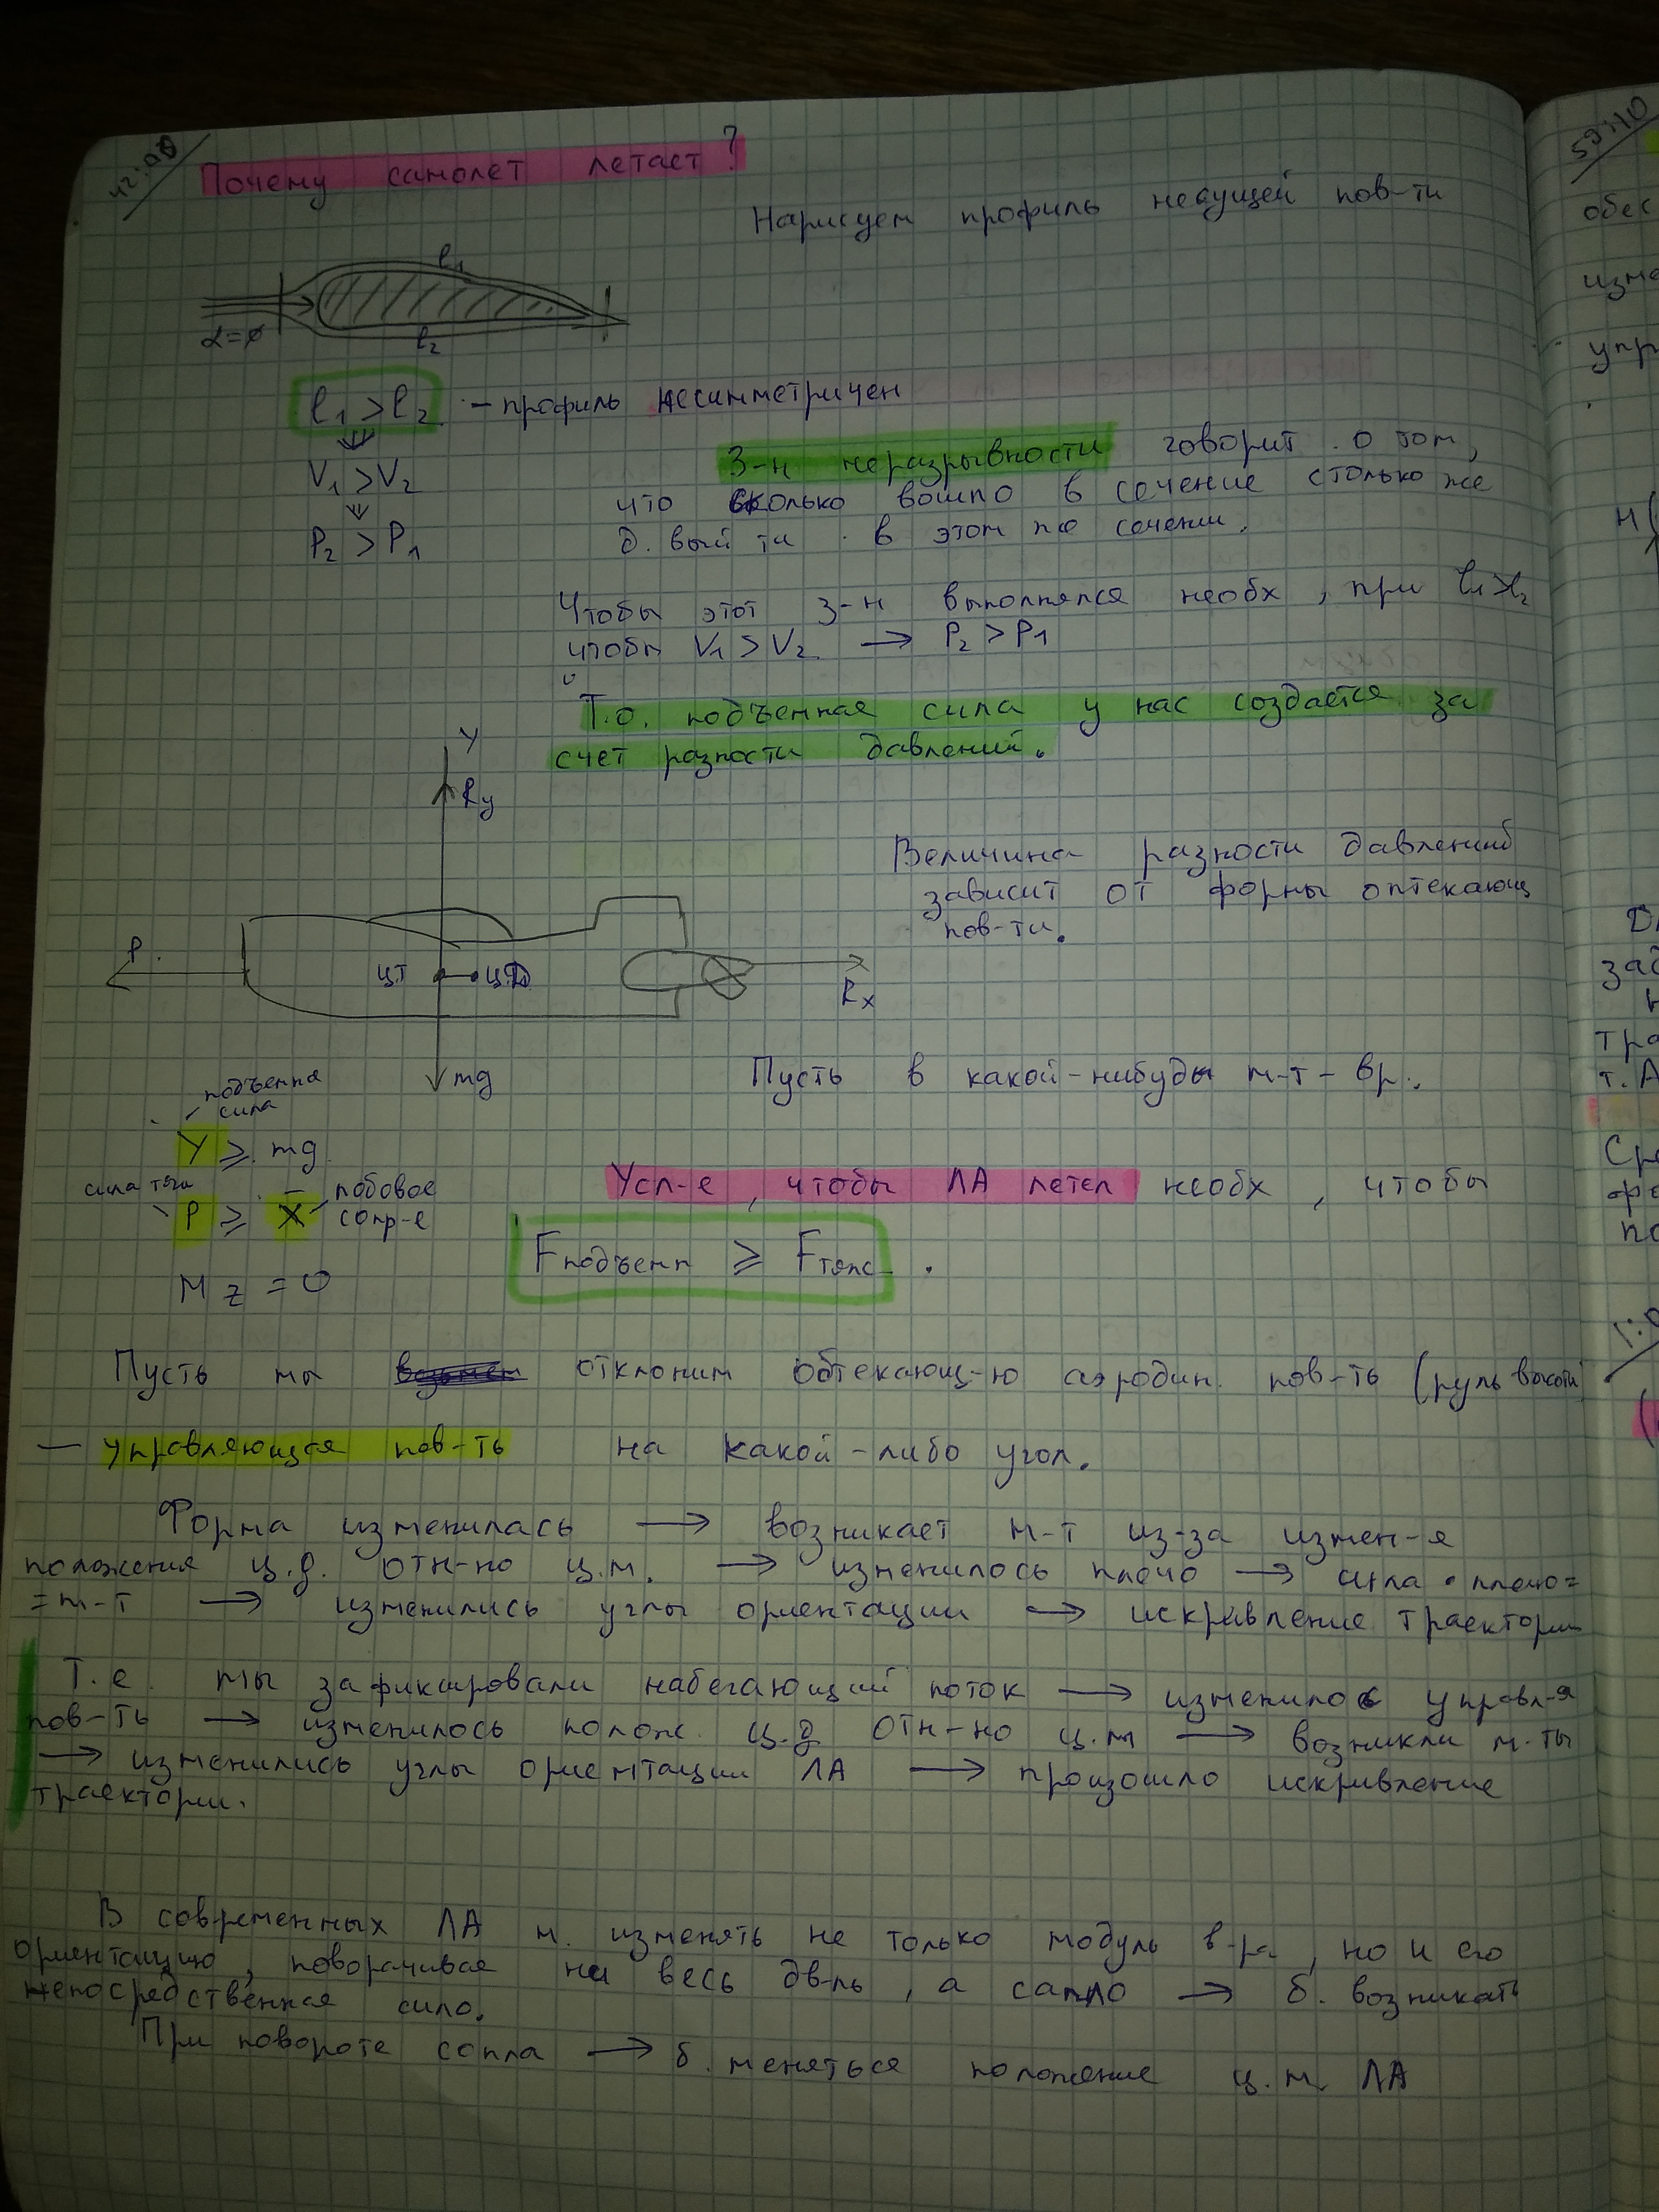 42:00
Почему самолет летает?
Нарисуем профиль несущей пов-ти
l1
α=0
l2
l1 > l2 - профиль несимметричен
V1 > V2
P2 > P1
З-н неразрывности говорит о том,
что сколько вошло в сечение столько же
д. выйти в этом же сечении.
Чтобы этот з-н выполнялся необх, при l1>l2
чтобы V1 > V2 → P2 > P1
Т.о. подъемная сила у нас создается за
счет разности давлений.
Y
Ry
Величина разности давлений
зависит от формы оптекающ
пов-ти.
P
ЦТ
ЦД
Rx
mg
Пусть в какой-нибудь м-т-вр.
подъемна
сила
Y ⩾ mg
сила тяги
P ⩾ X
лобовое
сопр-е
Mz = 0
Усл-е, чтобы ЛА летел необх, чтобы
Fподъемн ⩾ Fтяж.
Пусть мы отклоним обтекающ-ю аэродин. пов-ть (руль высоты)
— управляющая пов-ть на какой-либо угол.
Форма изменилась → возникает м-т из-за измен-я
положения ц.д. отн-но ц.м. → изменилось плечо → сила • плечо=
=м-т → изменились углы ориентации → искривление траектории
Т.е. мы зафиксировали набегающий поток → изменилос управл-я
пов-ть → изменилось полож. ц.д отн-но ц.м → возникли м-ты
→ изменились углы ориентации ЛА → произошло искривление
траектории.
В современных ЛА м. изменять не только модуль в-ра, но и его
ориентацию, поворачивая не весь дв-ль, а сопло → б. возникать
непосредственная сила.
При повороте сопла → б. меняться положение ц.м. ЛА
59:40
обес
изме
упр